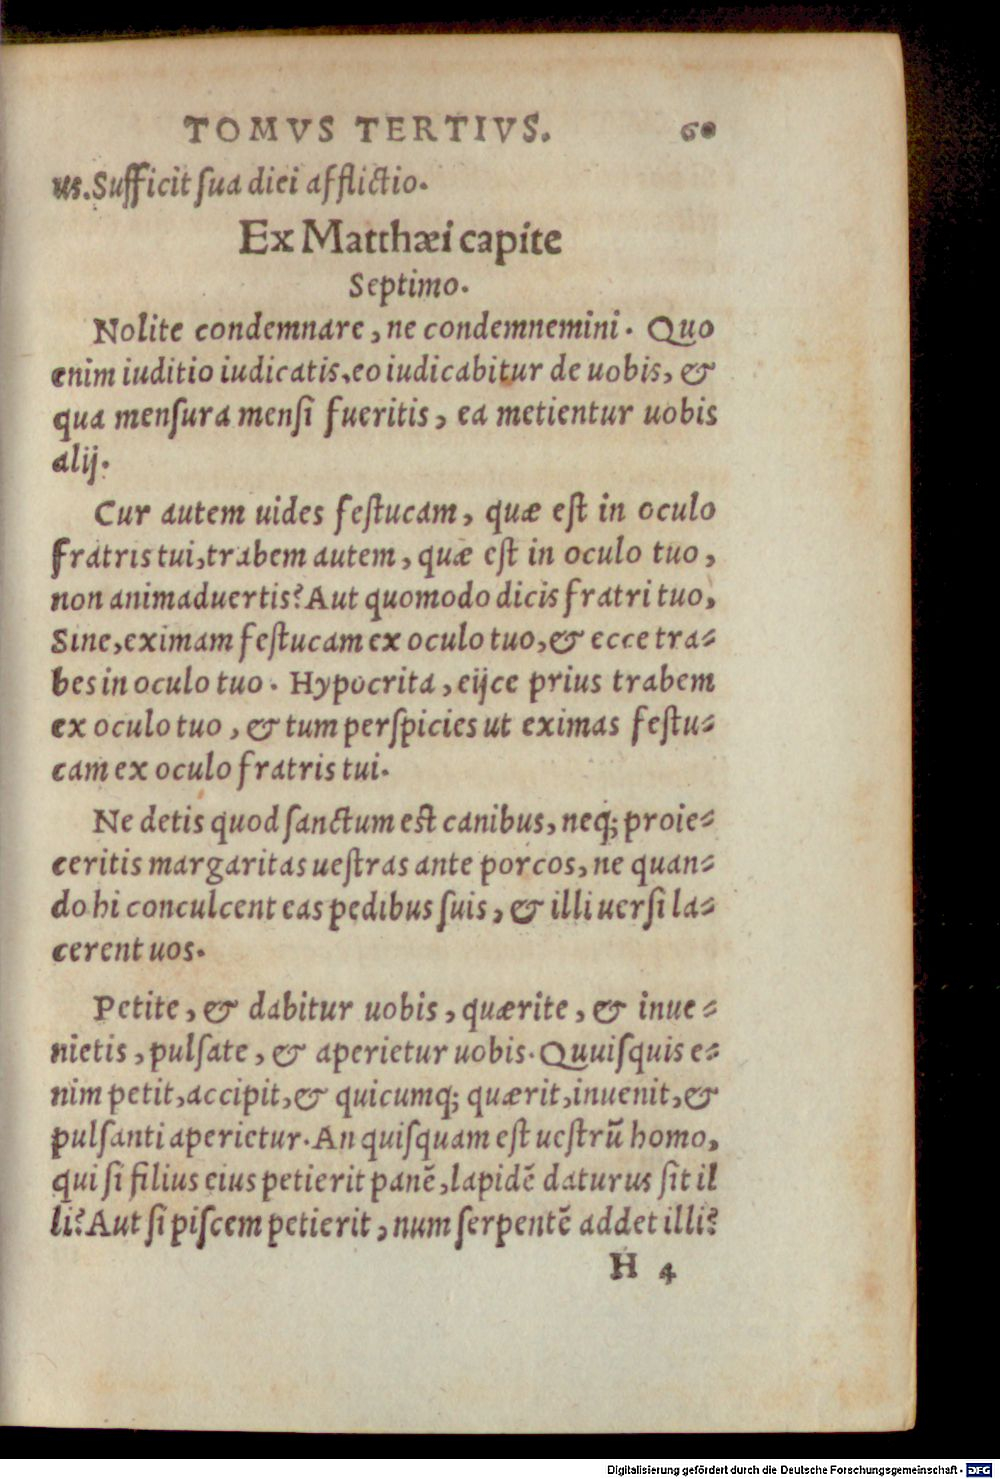 TOMVS TERTIVS. 60
us. Sufficit ſua diei afflictio.
Ex Matthæi capite
Septimo.
Nolite condemnare, ne condemnemini. Quo
enim iuditio iudicatis, eo iudicabitur de uobis, &
qua menſura menſi fueritis, ea metientur uobis
alij.
Cur autem uides feſtucam, quæ eſt in oculo
fratris tui, trabem autem, quæ eſt in oculo tuo,
non animaduertis? Aut quomodo dicis fratri tuo,
Sine, eximam feſtucam ex oculo tuo, & ecce tra⸗
bes in oculo tuo. Hypocrita, eijce prius trabem
ex oculo tuo, & tum perſpicies ut eximas feſtu⸗
cam ex oculo fratris tui.
Ne detis quod ſanctum eſt canibus, neq; proie⸗
ceritis margaritas ueſtras ante porcos, ne quan⸗
do hi conculcent eas pedibus ſuis, & illi uerſi la⸗
cerent uos.
Petite, & dabitur uobis, quærite, & inue⸗
nietis, pulſate, & aperietur uobis. Quuiſquis e⸗
nim petit, accipit, & quicumq; quærit, inuenit, &
pulſanti aperietur. An quiſquam eſt ueſtrũ homo,
qui ſi filius eius petierit panẽ, lapidẽ daturus ſit il
li? Aut ſi piſcem petierit, num ſerpentẽ addet illi?
H 4
Digitalisierung gefördert durch die Deutsche Forschungsgemeinschaft - DFG